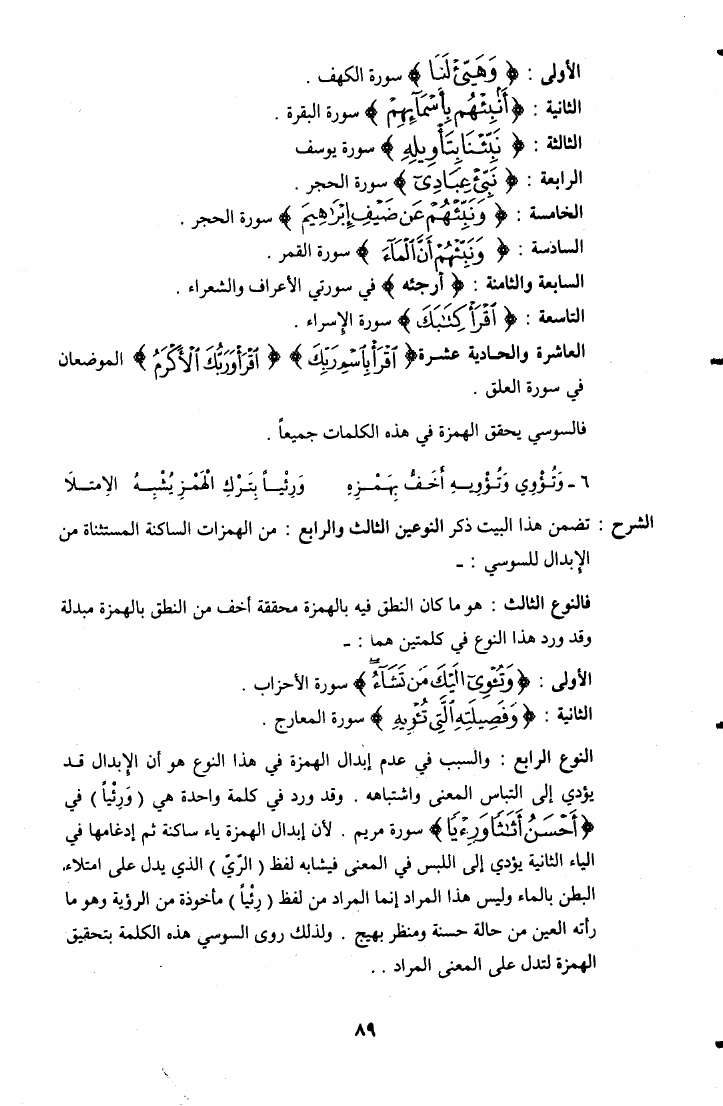 الأولى : ﴿ وَهَيِّئْ لَنَا ﴾ سورة الكهف .
الثانية : ﴿ أَنْبِئْهُم بِأَسْمَآئِهِمْ ﴾ سورة البقرة .
الثالثة : ﴿ نَبِّئْنَا بِتَأْوِيلِهِ ﴾ سورة يوسف
الرابعة : ﴿ نَبِّئْ عِبَادِىٓ ﴾ سورة الحجر .
الخامسة : ﴿ وَنَبِّئْهُمْ عَن ضَيْفِ إِبْرَاهِيمَ ﴾ سورة الحجر .
السادسة : ﴿ وَنَبِّئْهُمْ أَنَّ ٱلْمَآءَ ﴾ سورة القمر .
السابعة والثامنة : ﴿ أرجئه ﴾ في سورتي الأعراف والشعراء .
التاسعة : ﴿ ٱقْرَأْ كِتَٰبَكَ ﴾ سورة الإسراء .
العاشرة والحادية عشرة ﴿ ٱقْرَأْ بِٱسْمِ رَبِّكَ ﴾ ﴿ ٱقْرَأْ وَرَبُّكَ ٱلْأَكْرَمُ ﴾ الموضعان
في سورة العلق .
فالسوسي يحقق الهمزة في هذه الكلمات جميعاً .
٦ ـ وَتُؤْوِي وَتُؤْوِيــهِ أَخَـفُّ بِهَـمْــزِهِ وَرِئْيـاً بِتَـرْكِ الْهَمْـزِ يُشْبِـهُ الامتـلَا
الشرح : تضمن هذا البيت ذكر النوعين الثالث والرابع : من الهمزات الساكنة المستثناة من
الإبدال للسوسي : ـ
فالنوع الثالث : هو ما كان النطق فيه بالهمزة محققة أخف من النطق بالهمزة مبدلة
وقد ورد هذا النوع في كلمتين هما : ـ
الأولى : ﴿ وَتُـْٔوِىٓ إِلَيْكَ مَن تَشَآءُ ﴾ سورة الأحزاب .
الثانية : ﴿ وَفَصِيلَتِهِ ٱلَّتِى تُـْٔوِيهِ ﴾ سورة المعارج .
النوع الرابع : والسبب في عدم إبدال الهمزة في هذا النوع هو أن الإبدال قـد
يؤدي إلى التباس المعنى واشتباهه . وقد ورد في كلمة واحدة هي ( وَرِئْياً ) في
﴿ أَحْسَنُ أَثَٰثًا وَرِءْيًا ﴾ سورة مريم . لأن إبدال الهمزة ياء ساكنة ثم إدغامها في
الياء الثانية يؤدي إلى اللبس في المعنى فيشابه لفظ ( الرّيّ ) الذي يدل على امتلاء
البطن بالماء وليس هذا المراد إنما المراد من لفظ ( رِئْياً ) مأخوذة من الرؤية وهو ما
رأته العين من حالة حسنة ومنظر بهيج . ولذلك روى السوسي هذه الكلمة بتحقيق
الهمزة لتدل على المعنى المراد . .
٨٩